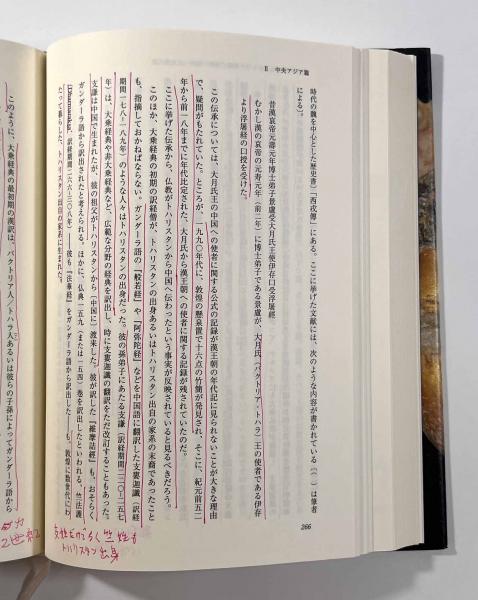 Ⅱ　中央アジア篇
時代の魏を中心とした歴史書）「西戎傳」にある。ここに挙げた文献には、次のような内容が書かれている（（　）は筆者
による）。
昔漢哀帝元壽元年博士弟子景盧受大月氏王使伊存口受浮屠經
むかし漢の哀帝の元寿元年（前二年）に博士弟子である景盧が、大月氏（バクトリア・トハラ）王の使者である伊存
より浮屠経の口授を受けた。
この伝承については、大月氏王の中国への使者に関する公式の記録が漢王朝の年代記に見られないことが大きな理由
で、疑問がもたれていた。ところが、一九九〇年代に、敦煌の懸泉置で十六点の竹簡が発見され、そこに、紀元前五二
年から前一八年までに年代比定された、大月氏から漢王朝への使者に関する記録が残されていたのだ。
ここに挙げた伝承から、仏教がトハリスタンから中国へ伝わったという事実が反映されていると見るべきだろう。
このほか、大乗経典の初期の訳経僧が、トハリスタンの出身あるいはトハリスタン出自の家系の末裔であったこと
も、指摘しておかねばならない。ガンダーラ語の『般若経』や『阿弥陀経』などを中国語に翻訳した支婁迦讖（訳経
期間一七八－一八九年）のような人々はトハリスタンの出身だった。彼の孫弟子にあたる支謙（訳経期間二二〇－二五七
年）は、大乗経典や非大乗経典など、広範な分野の経典を訳出し、時に支婁迦讖の翻訳をただ改訂することもあった。
支謙は中国で生まれたが、彼の祖父がトハリスタンから（中国に）渡来した。彼が訳した『維摩詰経』も、おそらく
ガンダーラ語から訳出されたと考えられる。ほかに、仏典一五九（または一五四）巻を訳出したといわれる、竺法護
訳経期間二六六－三〇八年
彼も『法華経』をガンダーラ語から訳出した――も、敦煌に数世代にわ
たって暮らした、トハリスタン出自の家系に生まれた。
このように、大乗経典の最初期の漢訳は、バクトリア人／トハラ人あるいは彼らの子孫によってガンダーラ語から
266
支姓だけでなく竺姓も
トハリスタン出身